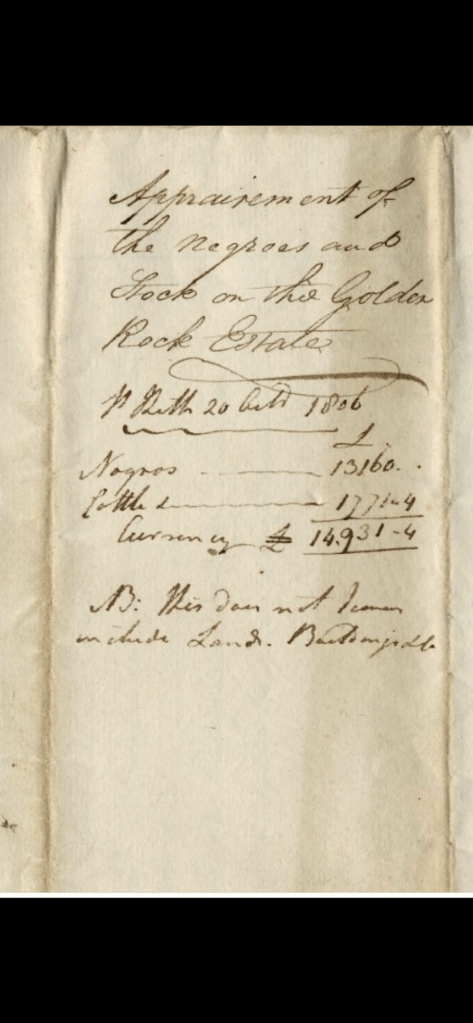 Appraisement of
the Negroes and
Stock on the Golden
Rock Estate
20 1806
£
Negros 13160.
Cattle & 1771-4
Currency £ 14,931-4
NB: this does not
include Land. Buildings &c